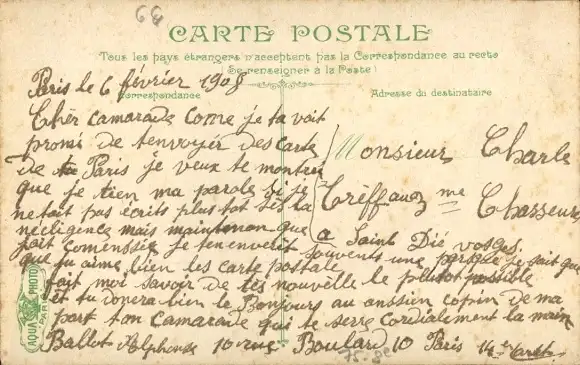 69
CARTE POSTALE
Tous les pays étrangers n'acceptent pas la Correspondance au recto
(Se renseigner à la Poste)
Paris le 6 février 1908
Correspondance
Adresse du destinataire
Chër camarade come je ta voit
promi de tenvoyér des carte
de Paris je veux te montrér
que je tien ma parole si je
ne tait pas écrits plus tot sés la
nécligence mais maintenan que
jait comenssér je tenverét souvents une parsque je sait que
que tu aime bien les carte postale
fait moi savoir de tés nouvélle le plutot possible
et tu donera bien le Bonjours au anssien copin de ma
part ton camarade qui te serre cordialement la main
Ballot Alphonse 10 rue Boulard 10 Paris 14e
Monsieur Charle
Trèffauz me Chasseur
a Saint Dié vosges
AQUA PHOTO
PARIS